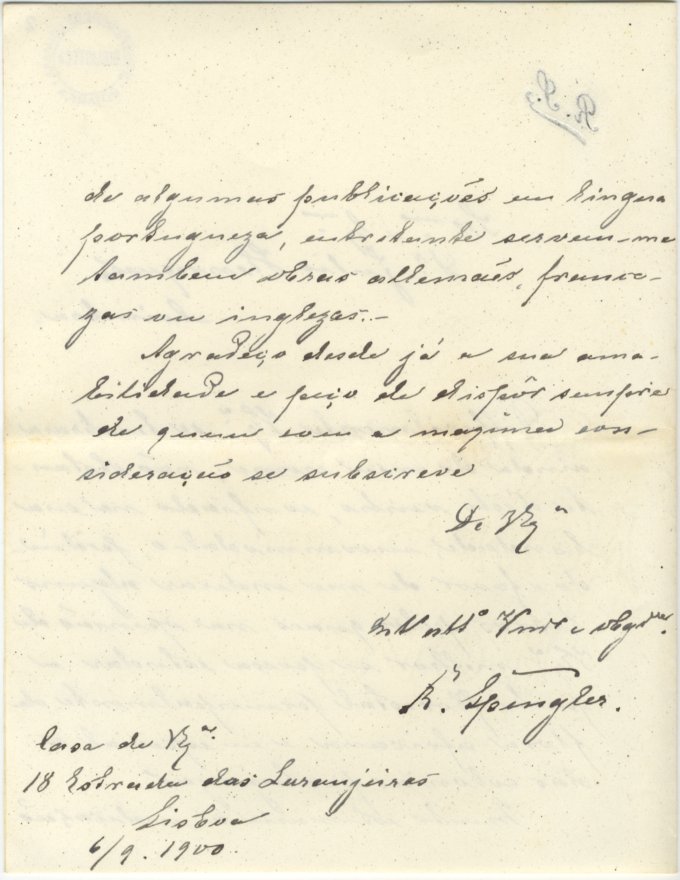 de algumas publicações em lingua
portugueza, entretanto servem-me
tambem obras allemães, france-
zas ou inglezas.-
Agradeço desde já a sua ama-
bilidade e peço de dispôr sempre
de quem com a maxima con-
sideração se subscreve
De V.Exª
Mtº attº Vndr e obgdo.
R. Spengler.
Casa de V.Exª
18 Estrada das Laranjeiras
Lisboa
6/9. 1900